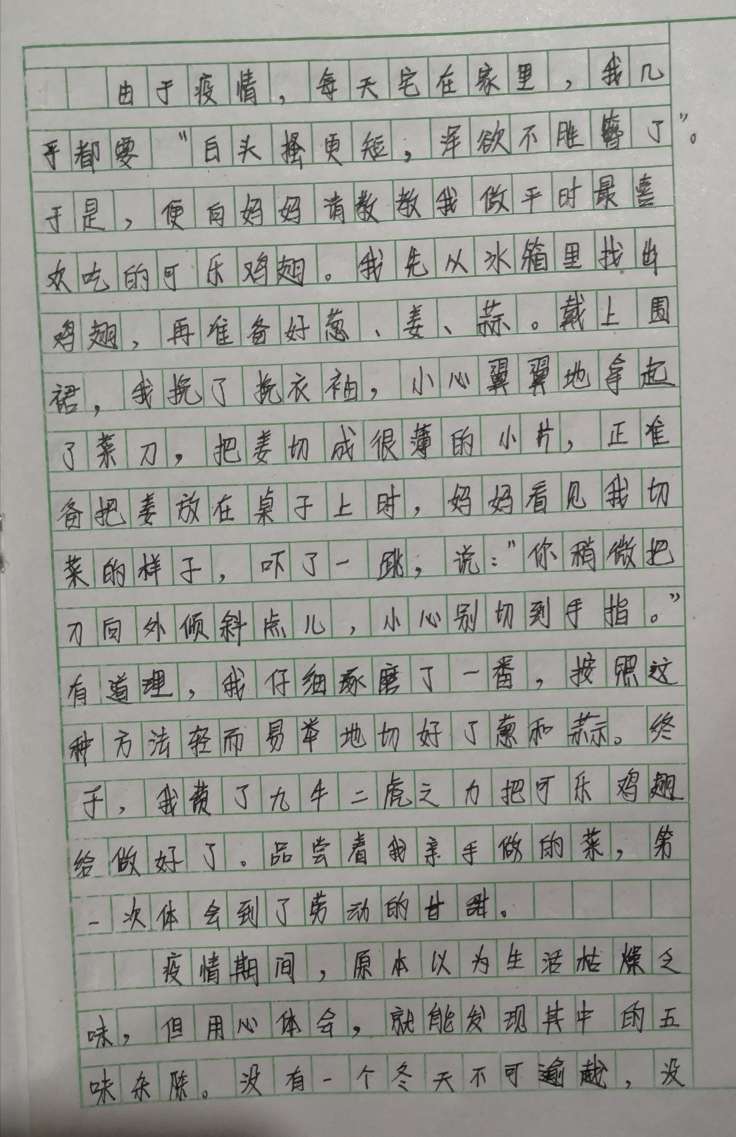 由于疫情，每天宅在家里，我几
乎都要“白头搔更短，浑欲不胜簪了”。
于是，便向妈妈请教教我做平时最喜
欢吃的可乐鸡翅。我先从冰箱里找出
鸡翅，再准备好葱、姜、蒜。戴上围
裙，我挽了挽衣袖，小心翼翼地拿起
了菜刀，把姜切成很薄的小片，正准
备把姜放在桌子上时，妈妈看见我切
菜的样子，吓了一跳，说：“你稍微把
刀向外倾斜点儿，小心别切到手指。”
有道理，我仔细琢磨了一番，按照这
种方法轻而易举地切好了葱和蒜。终
于，我费了九牛二虎之力把可乐鸡翅
给做好了。品尝着我亲手做的菜，第
一次体会到了劳动的甘甜。
疫情期间，原本以为生活枯燥乏
味，但用心体会，就能发现其中的五
味杂陈。没有一个冬天不可逾越，没